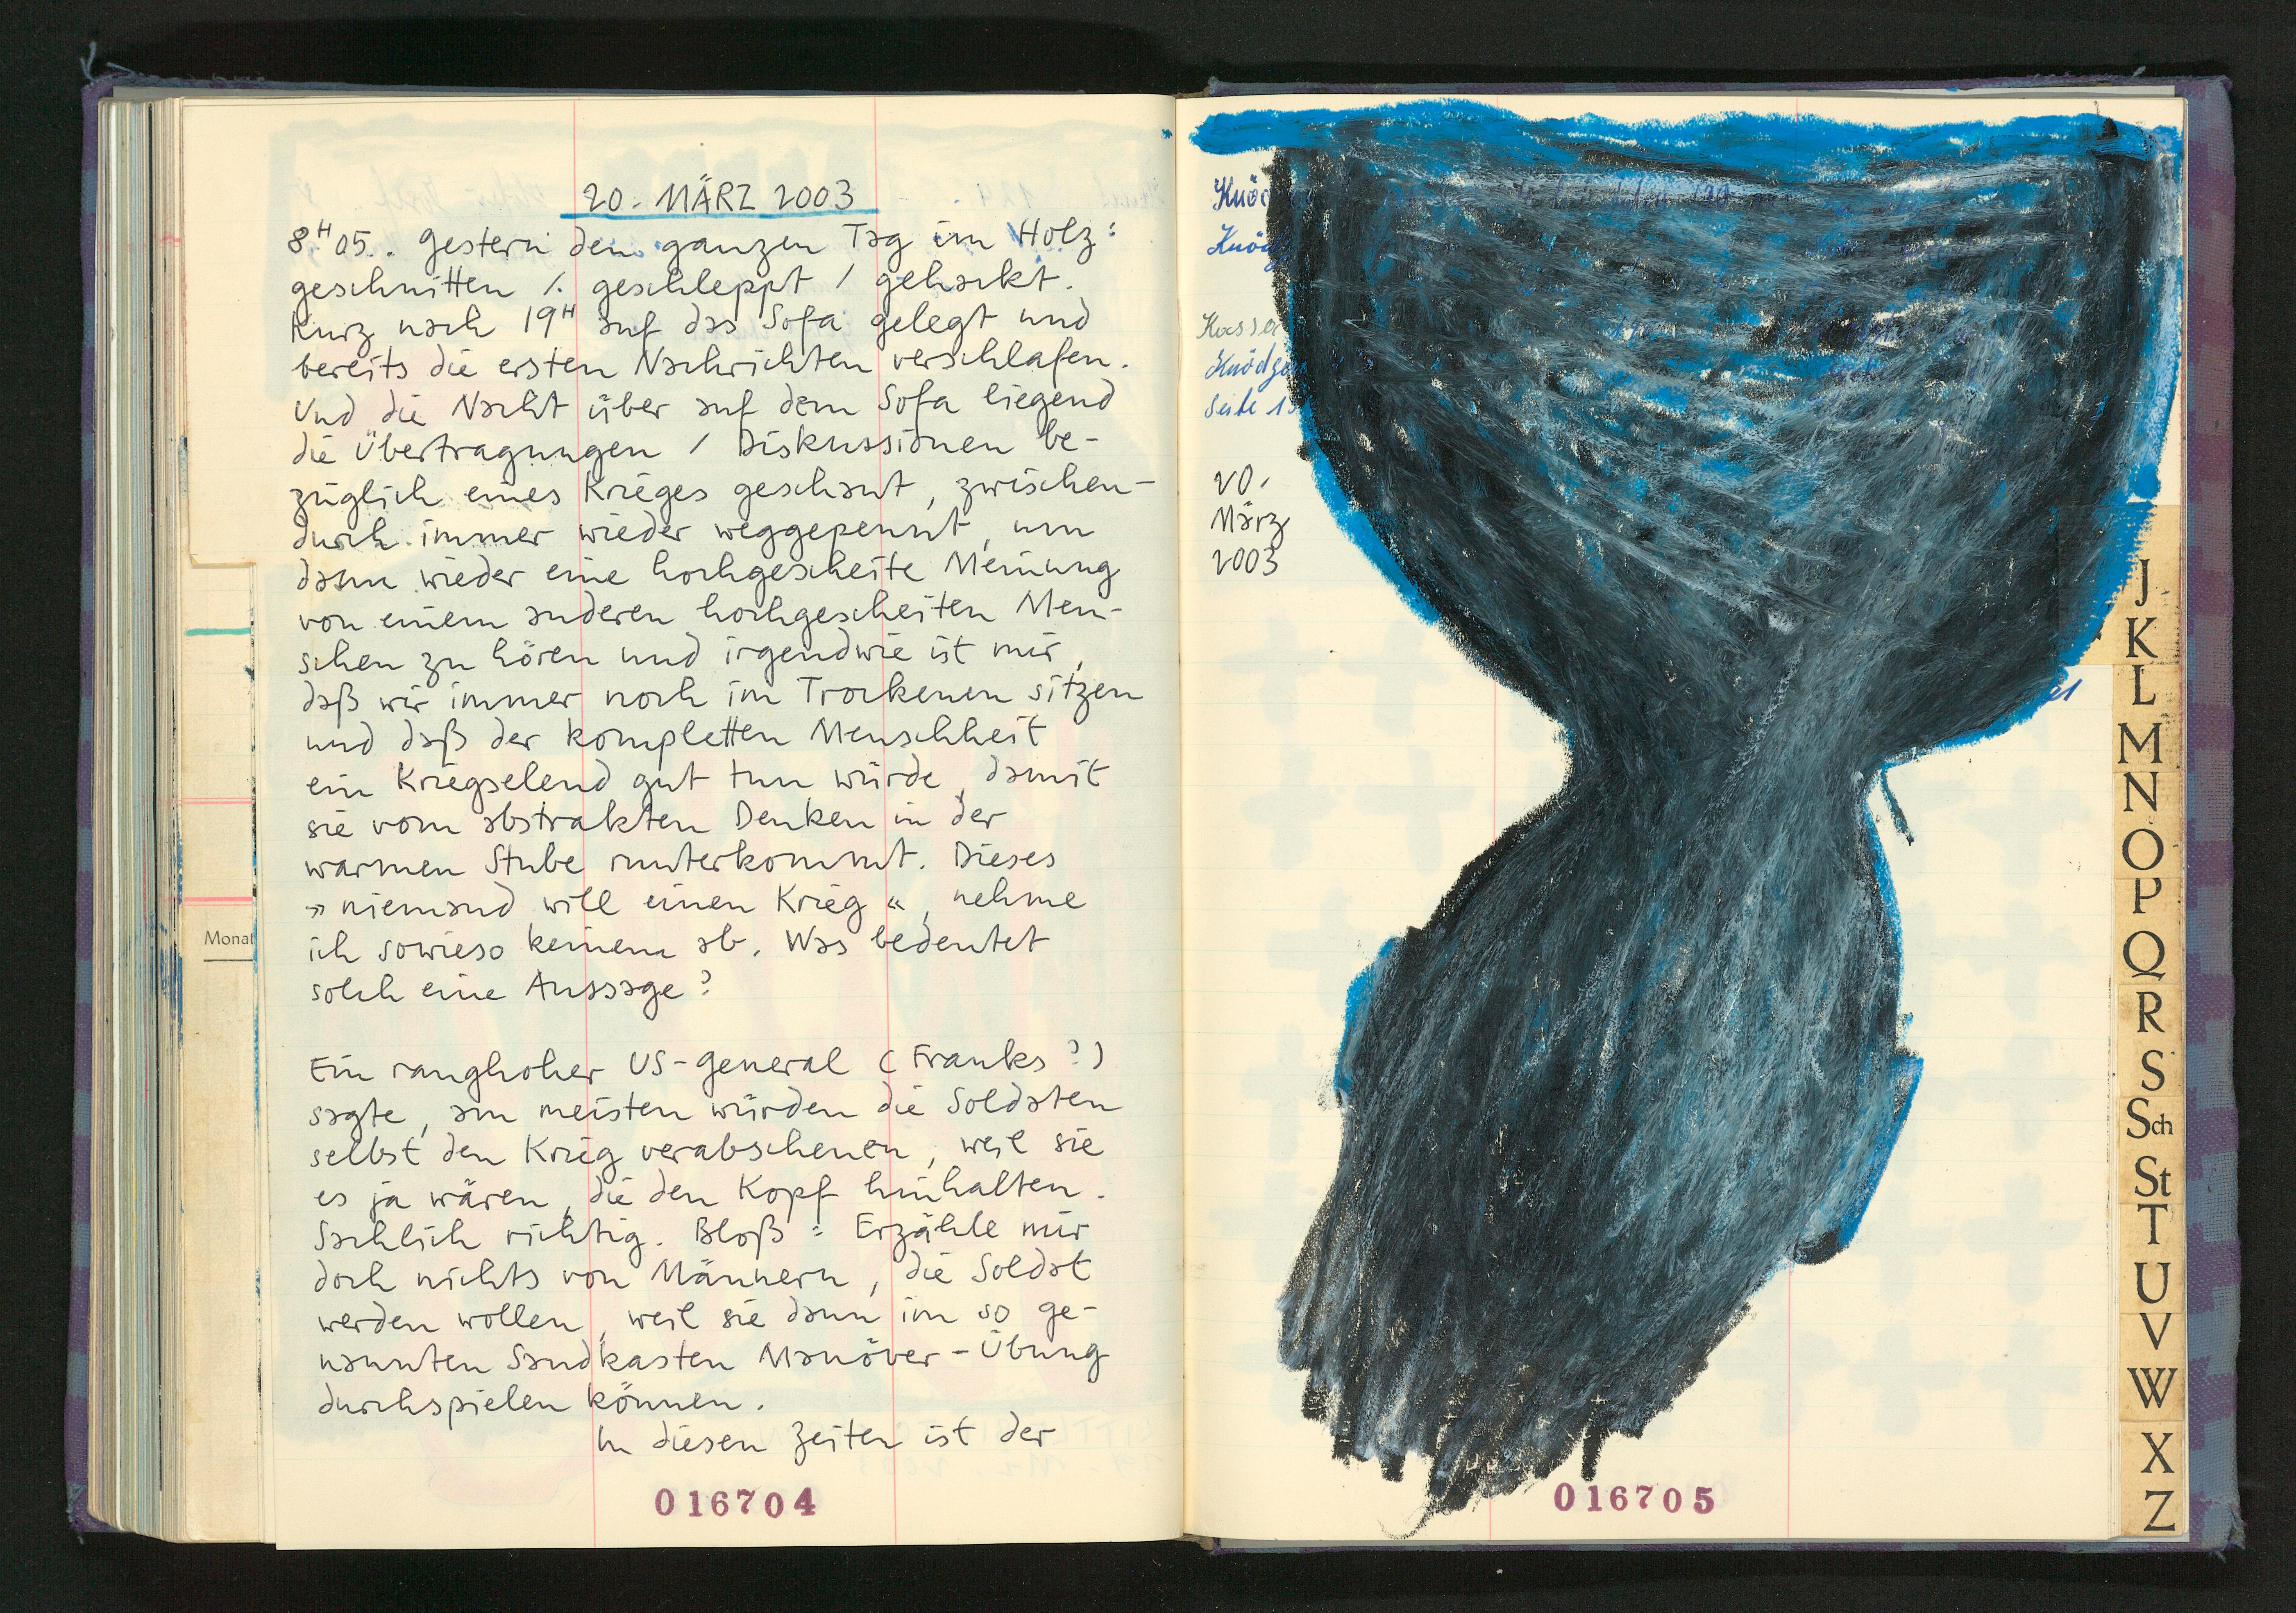 20. MÄRZ 2003
8H05.. Gestern den ganzen Tag im Holz:
geschnitten /. geschleppt / gehackt.
Kurz nach 19H auf das Sofa gelegt und
bereits die ersten Nachrichten verschlafen.
Und die Nacht über auf dem Sofa liegend
die Übertragungen / Diskussionen be-
züglich eines Krieges geschaut, zwischen-
durch immer wieder weggepennt, um
dann wieder eine hochgescheite Meinung
von einem anderen hochgescheiten Men-
schen zu hören und irgendwie ist mir,
daß wir immer noch im Trockenen sitzen
und daß der kompletten Menschheit
ein Kriegselend gut tun würde, damit
sie vom abstrakten Denken in der
warmen Stube runterkommt. Dieses
» niemand will einen Krieg «, nehme
ich sowieso keinem ab. Was bedeutet
solch eine Aussage?
Ein ranghoher US-General (Franks?)
sagte, am meisten würden die Soldaten
selbst den Krieg verabscheuen, weil sie
es ja wären, die den Kopf hinhalten.
Sachlich richtig. Bloß: Erzähle mir
doch nichts von Männern, die Soldat
werden wollen, weil sie dann im so ge-
nannten Sandkasten Manöver-Übung
durchspielen können.
In diesen Zeiten ist der
016704
Monat
Seite
20.
März
2003
016705
J
K
L
M
N
O
P
Q
R
S
Sch
St
T
U
V
W
X
Z